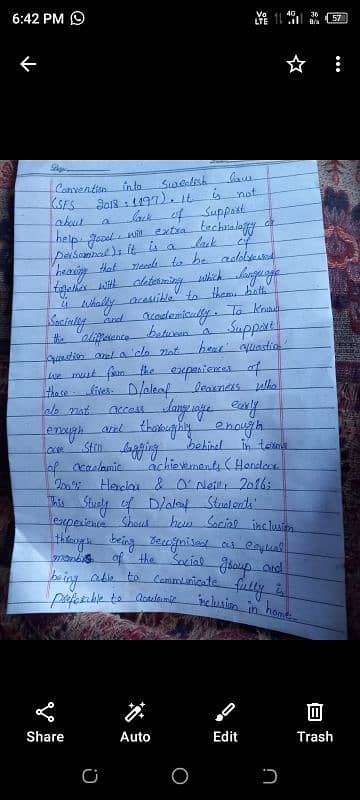 6:42 PM
Vo
LTE
4G
36
B/s
57
Convention into Swedish law
(SFS 2018:1197). It is not
about a lack of support
help good will extra technology or
personnel); it is a lack of
hearing that needs to be addressed
together with determing which language
is wholly acessible to them both
Socially and academically. To know
the difference between a Support
question and a 'do not hear' question
we must from the experiences of
those lives. D/deaf learners who
do not access language early
enough and thoroughly enough
are Still lagging behind in terms
of academic achievements (Hendar
2009; Hendar & O'Neill, 2016;
This Study of D/deaf Students'
experience Shows how Social inclusion
through being recognised as equal
of the Social group and
being able to communicate fully is
preferable to academic inclusion in home-
Share
Auto
Edit
Trash